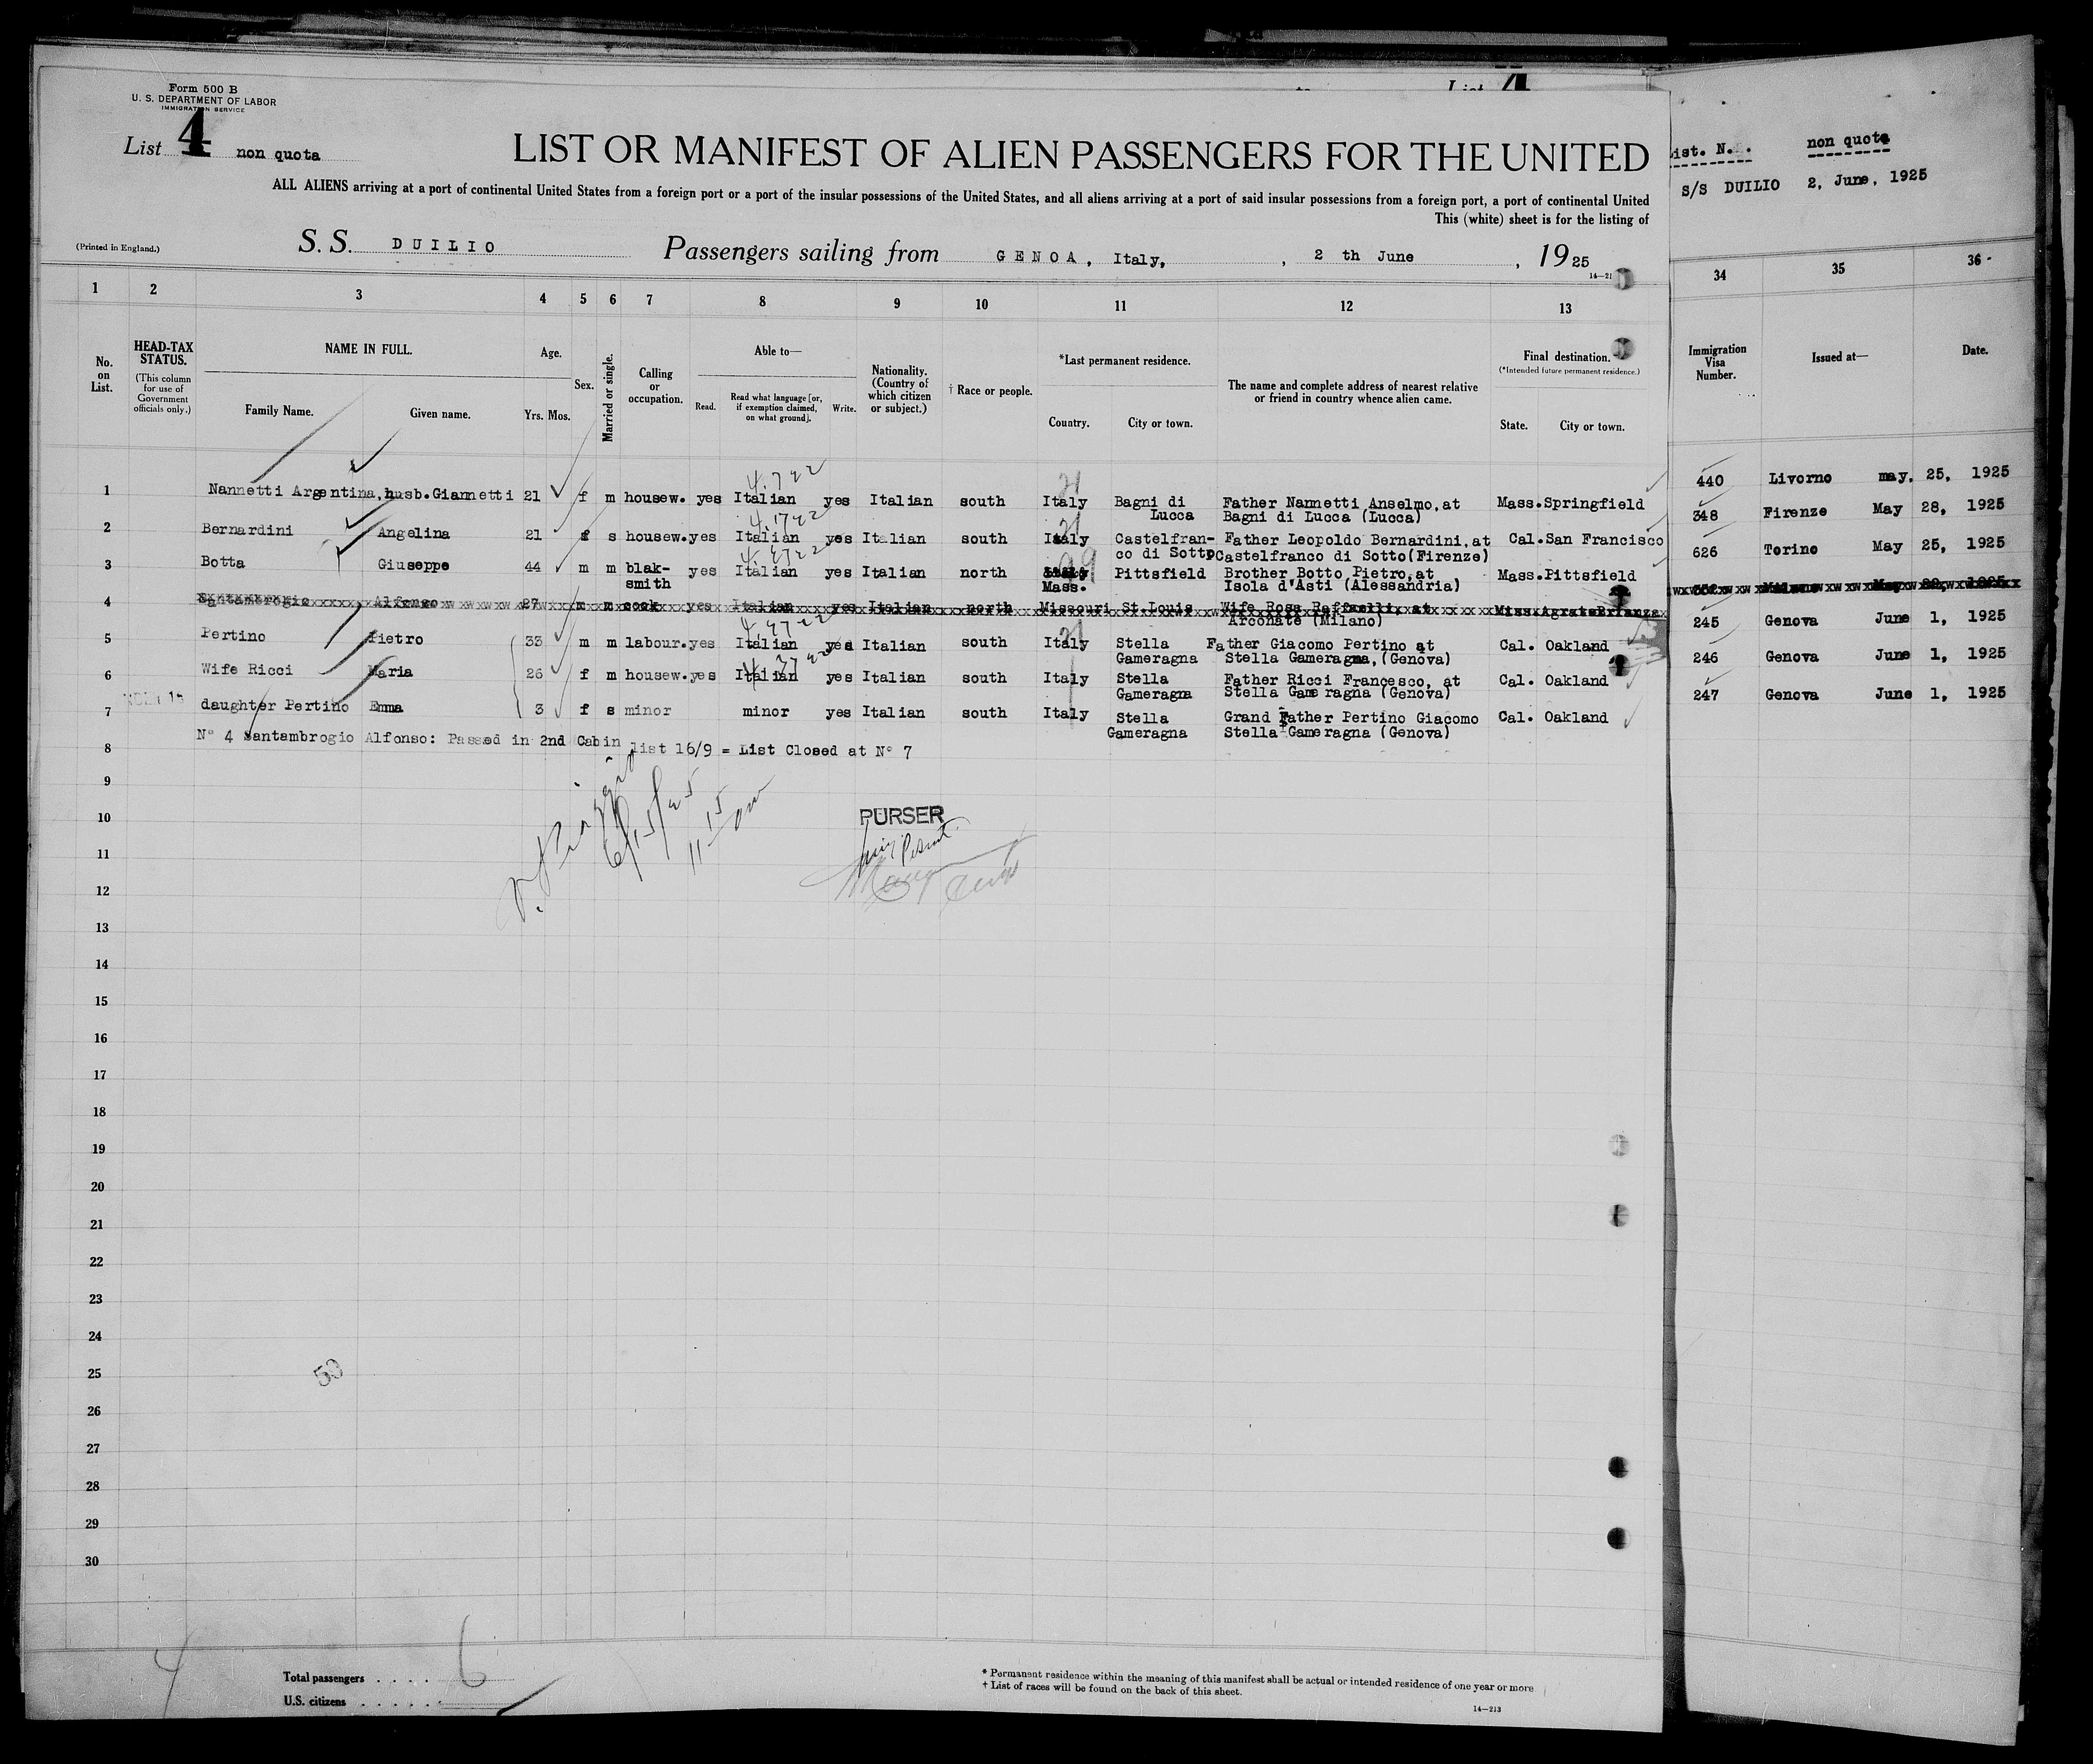 Form 500 B
U. S. DEPARTMENT OF LABOR
IMMIGRATION SERVICE
List 4 non quota
LIST OR MANIFEST OF ALIEN PASSENGERS FOR THE UNITED
ALL ALIENS arriving at a port of continental United States from a foreign port or a port of the insular possessions of the United States, and all aliens arriving at a port of said insular possessions from a foreign port, a port of continental United
This (white) sheet is for the listing of
(Printed in England.)
S. S. DUILIO Passengers sailing from GENOA, Italy, , 2 th June , 1925
14—21
List 4
List. N. non quota
S/S DUILIO 2, June, 1925
1 2 3 4 5 6 7 8 9 10 11 12 13 34 35 36
No. on List.
HEAD-TAX STATUS.
(This column for use of Government officials only.)
NAME IN FULL.
Family Name. Given name.
Age.
Yrs. Mos.
Sex.
Married or single.
Calling or occupation.
Able to—
Read. Read what language [or, if exemption claimed, on what ground]. Write.
Nationality. (Country of which citizen or subject.)
† Race or people.
*Last permanent residence.
Country. City or town.
The name and complete address of nearest relative or friend in country whence alien came.
Final destination.
(*Intended future permanent residence.)
State. City or town.
Immigration Visa Number.
Issued at—
Date.
1 Nannetti Argentina, husb. Giannetti 21 f m housew. yes Italian yes Italian south Italy Bagni di Lucca Father Nannetti Anselmo, at Bagni di Lucca (Lucca) Mass. Springfield 440 Livorno may, 25, 1925
2 Bernardini Angelina 21 f s housew. yes Italian yes Italian south Italy Castelfran- co di Sotto Father Leopoldo Bernardini, at Castelfranco di Sotto(Firenze) Cal. San Francisco 348 Firenze May 28, 1925
3 Botta Giuseppe 44 m m blak- smith yes Italian yes Italian north Mass. Pittsfield Brother Botto Pietro, at Isola d'Asti (Alessandria) Mass. Pittsfield 626 Torino May 25, 1925
4 Santambrogio Alfonso 27 m m cook yes Italian yes Italian north Missouri St. Louis Wife Rosa Raffaelli, at Arconate (Milano) Miss. Agrate Brianza Milano May 1925
5 Pertino Pietro 33 m m labour. yes Italian yes Italian south Italy Stella Gameragna Father Giacomo Pertino at Stella Gameragna, (Genova) Cal. Oakland 245 Genova June 1, 1925
6 Wife Ricci Maria 26 f m housew. yes Italian yes Italian south Italy Stella Gameragna Father Ricci Francesco, at Stella Gameragna (Genova) Cal. Oakland 246 Genova June 1, 1925
7 daughter Pertino Emma 3 f s minor minor yes Italian south Italy Stella Gameragna Grand Father Pertino Giacomo Stella Gameragna (Genova) Cal. Oakland 247 Genova June 1, 1925
N° 4 Santambrogio Alfonso: Passed in 2nd Cabin list 16/9 = List Closed at N° 7
8
9
10
11
12
13
14
15
16
17
18
19
20
21
22
23
24
25
26
27
28
29
30
6/15/25
11 15 am
PURSER
50
4
Total passengers . . . . 6
U.S. citizens . . . . . .
* Permanent residence within the meaning of this manifest shall be actual or intended residence of one year or more
† List of races will be found on the back of this sheet.
14—213